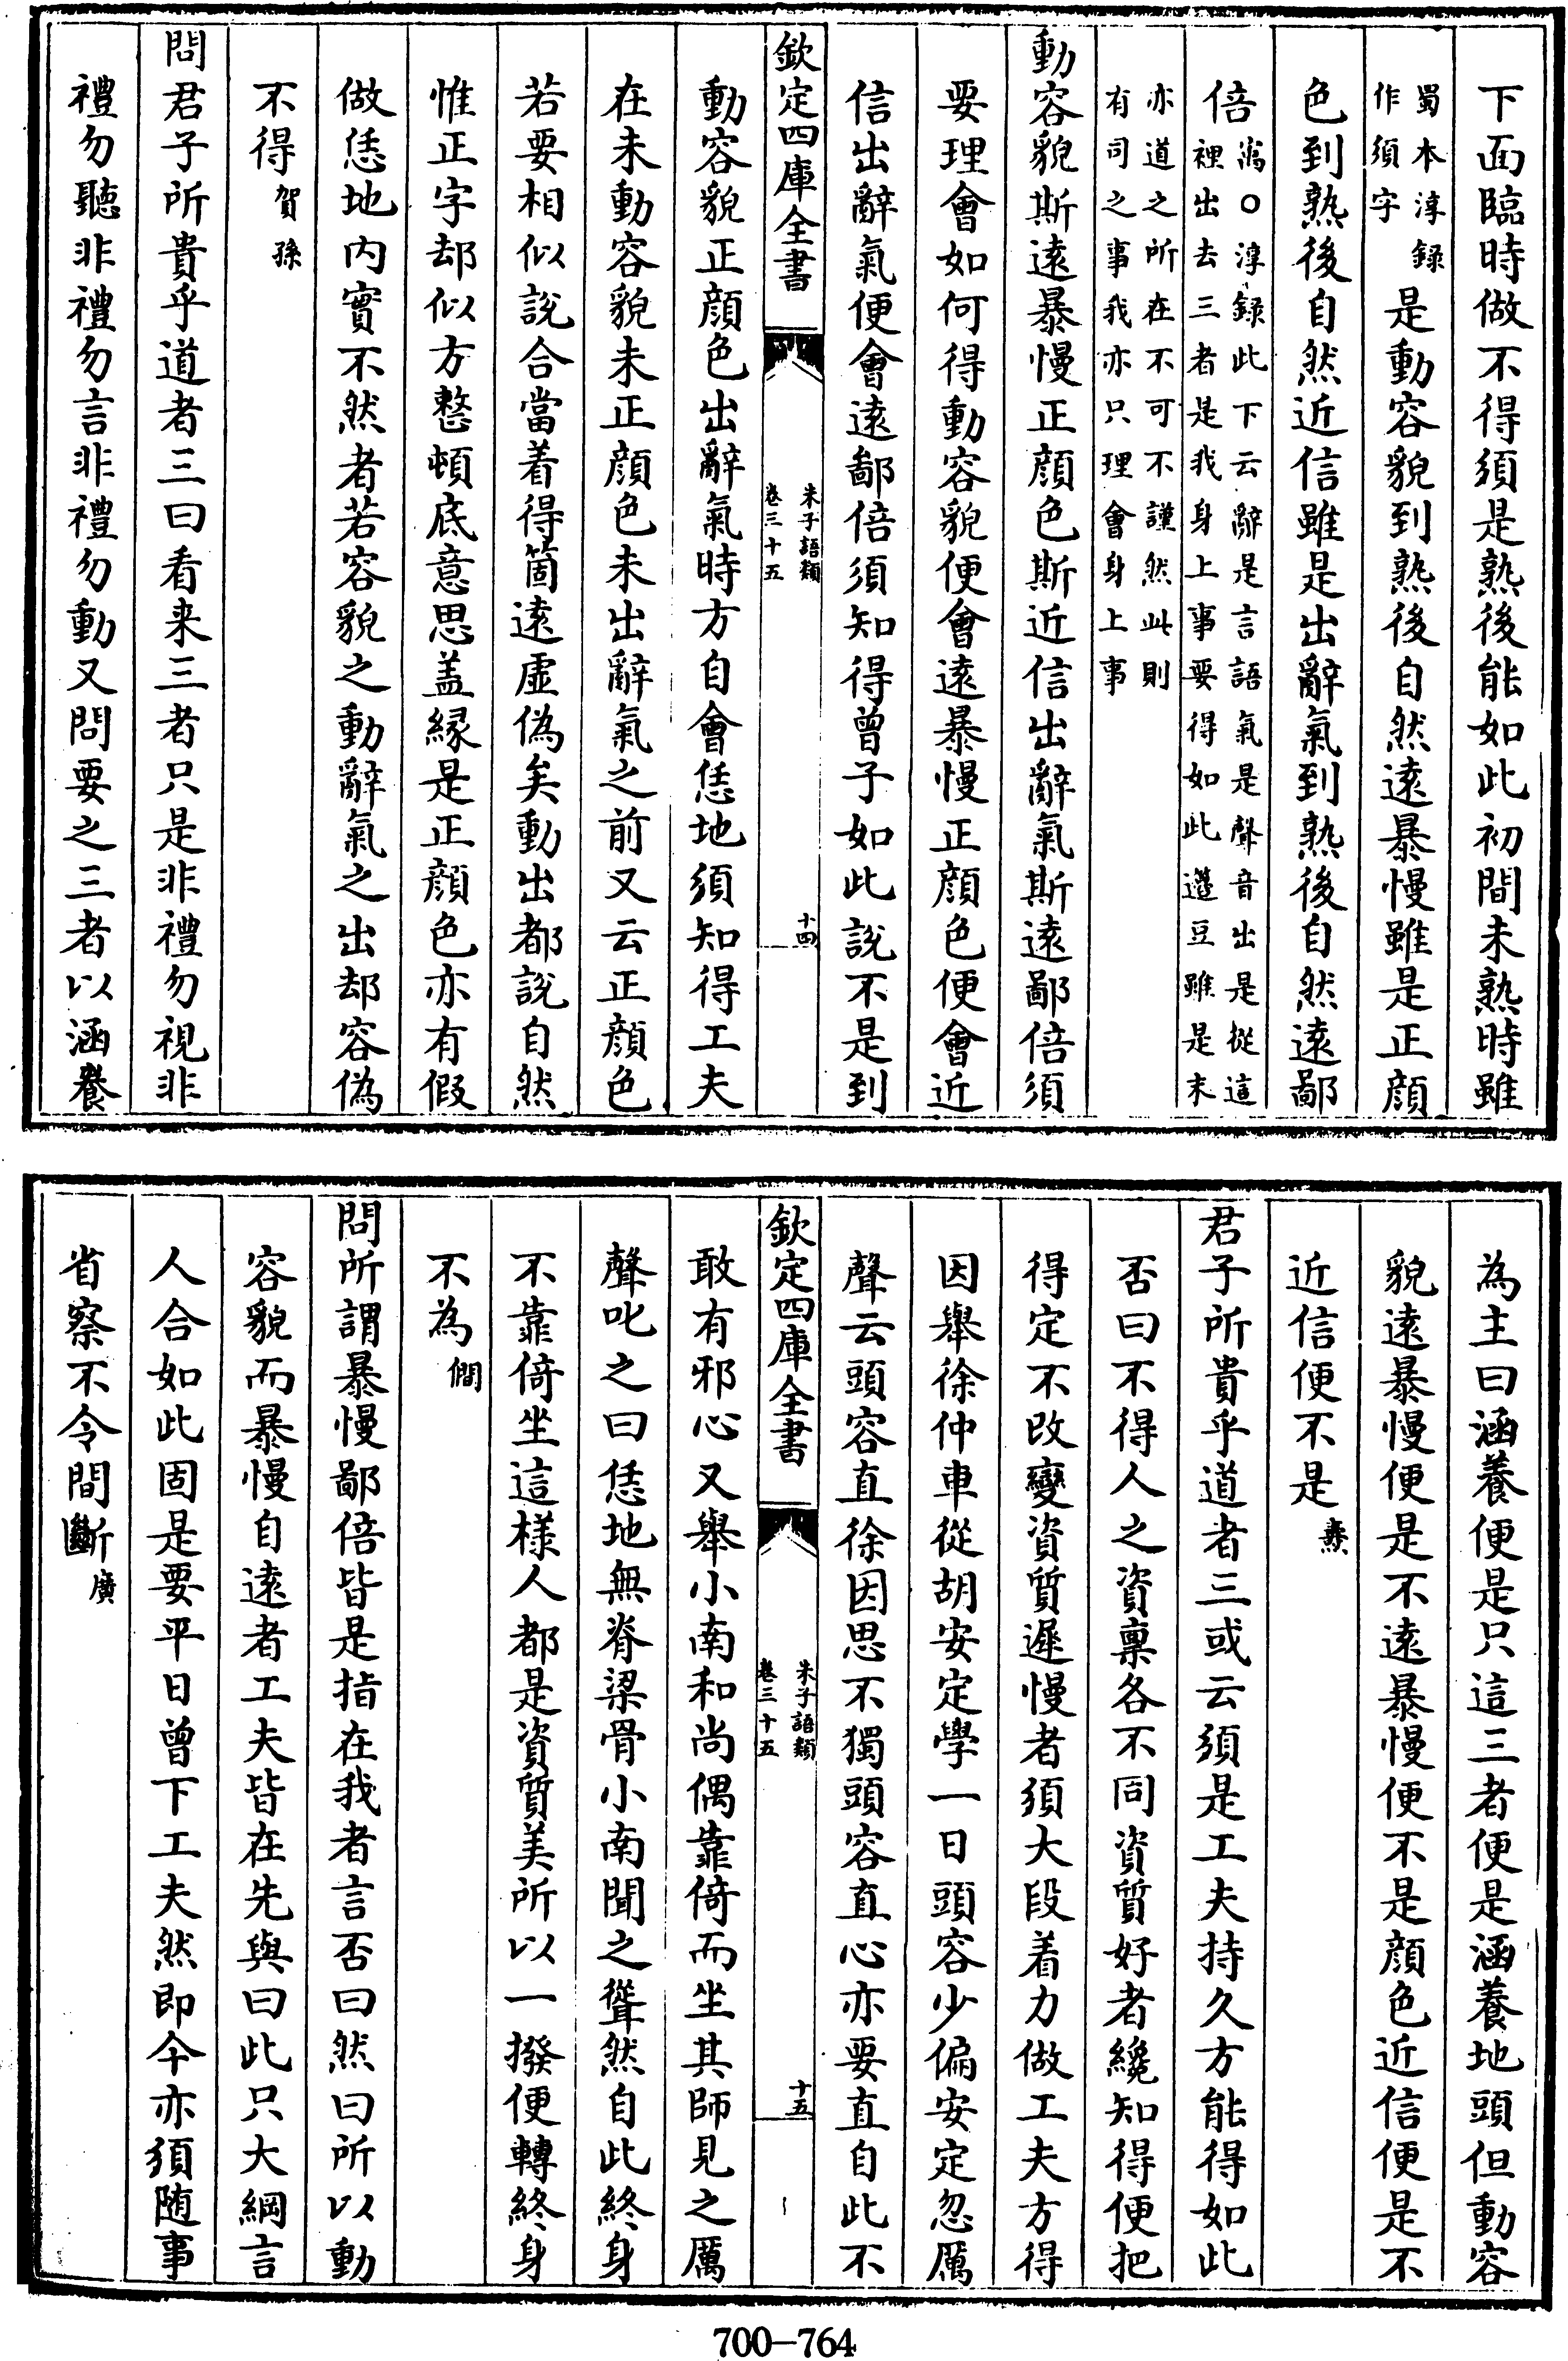 下面臨時做不得須是熟後能如此初間未熟時雖
蜀本淳録
作須字
是動容貌到熟後自然遠暴慢雖是正顔
色到熟後自然近信雖是出辭氣到熟後自然遠鄙
倍
㵎○淳録此下云辭是言語氣是聲音出是從這
裡出去三者是我身上事要得如此籩豆雖是末
亦道之所在不可不謹然此則
有司之事我亦只理會身上事
動容貌斯遠暴慢正顔色斯近信出辭氣斯遠鄙倍須
要理會如何得動容貌便會遠暴慢正顔色便會近
信出辭氣便會遠鄙倍須知得曾子如此說不是到
欽定四庫全書
朱子語類
卷三十五
十四
動容貌正顔色出辭氣時方自會恁地須知得工夫
在未動容貌未正顔色未出辭氣之前又云正顔色
若要相似說合當着得箇遠虛偽矣動出都說自然
惟正字却似方整頓底意思盖縁是正顔色亦有假
做恁地内實不然者若容貌之動辭氣之出却容偽
不得賀孫
問君子所貴乎道者三曰看来三者只是非禮勿視非
禮勿聽非禮勿言非禮勿動又問要之三者以涵養
為主曰涵養便是只這三者便是涵養地頭但動容
貌遠暴慢便是不遠暴慢便不是顔色近信便是不
近信便不是燾
君子所貴乎道者三或云須是工夫持久方能得如此
否曰不得人之資稟各不同資質好者纔知得便把
得定不改變資質遲慢者須大段着力做工夫方得
因舉徐仲車從胡安定學一日頭容少偏安定忽厲
聲云頭容直徐因思不獨頭容直心亦要直自此不
欽定四庫全書
朱子語類
卷三十五
十五
敢有邪心又舉小南和尚偶靠倚而坐其師見之厲
聲叱之曰恁地無脊梁骨小南聞之聳然自此終身
不靠倚坐這樣人都是資質美所以一撥便轉終身
不為僩
問所謂暴慢鄙倍皆是指在我者言否曰然曰所以動
容貌而暴慢自遠者工夫皆在先與曰此只大綱言
人合如此固是要平日曾下工夫然即今亦須随事
省察不令間斷廣
700-764